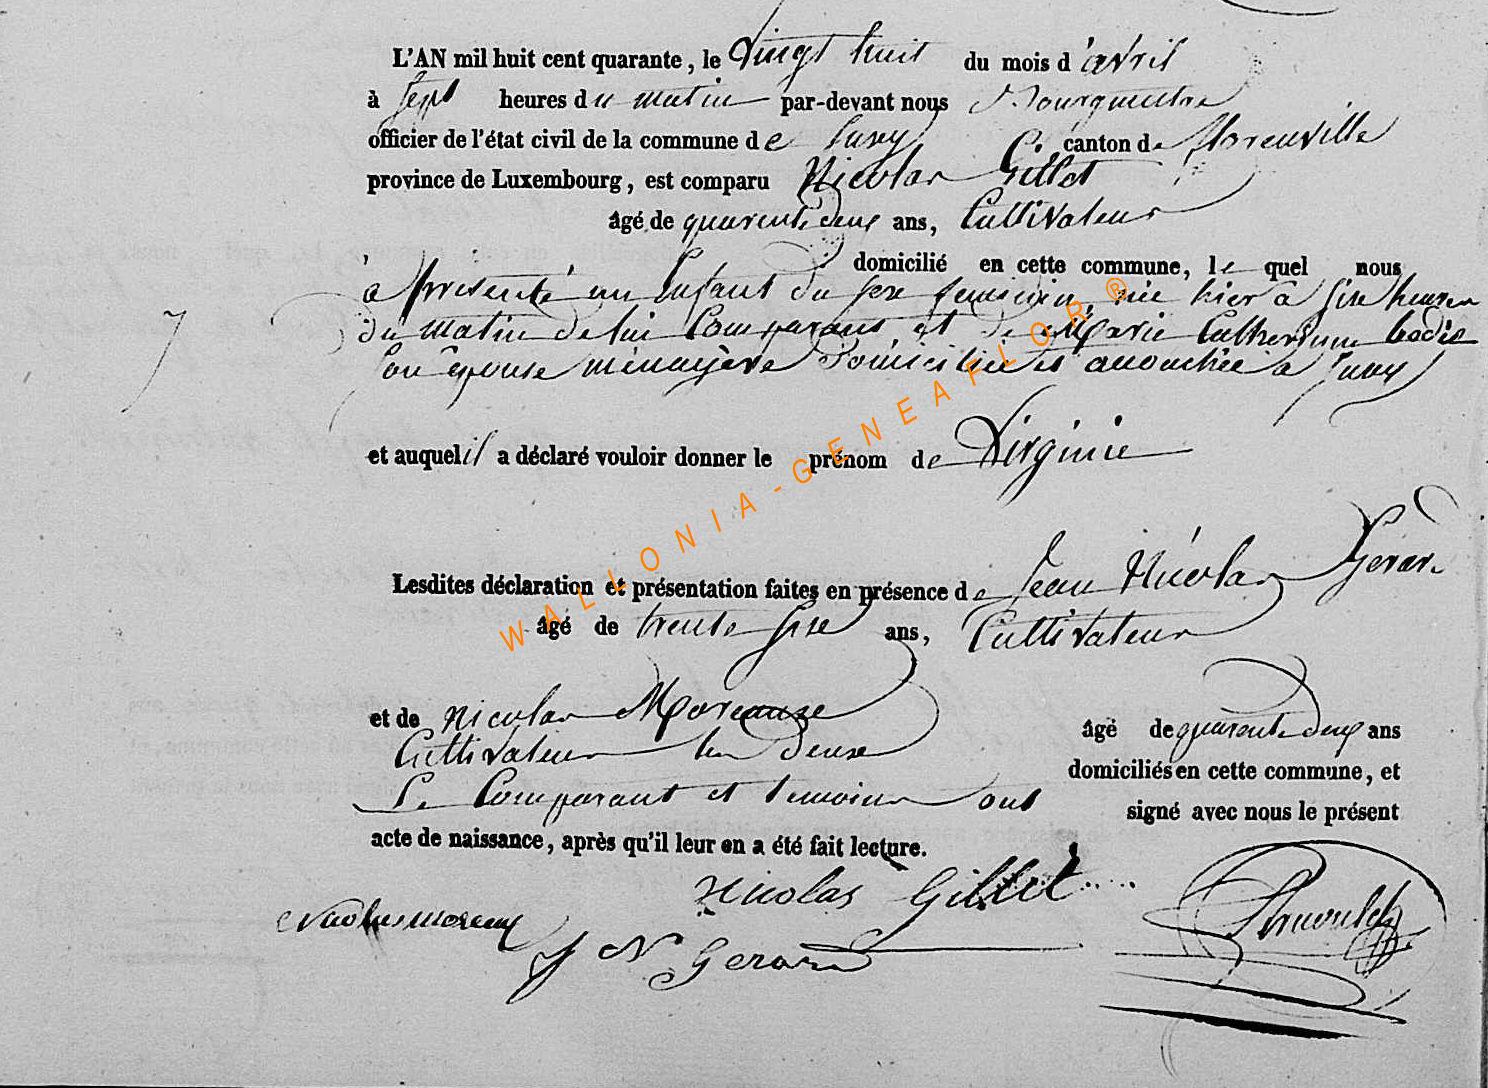 L'AN mil huit cent quarante, le Vingt huit du mois d'avril
à Sept heures du matin par-devant nous Bourgmestre
officier de l'état civil de la commune de Juvy canton de florenville
province de Luxembourg, est comparu Nicolas Gillet
âgé de quarente deux ans, Cultivateur
domicilié en cette commune, le quel nous
à présenté un Enfant du sexe feminin, née hier à sixe heures
7 du matin de lui Comparant et de Marie Catherinne
Son épouse ménagère Domiciliée et accouchée à Juvy
et auquel il a déclaré vouloir donner le prénom de Virginie
WALLONIA-GENEAFLOR®
Lesdites déclaration et présentation faites en présence de Jean Nicolas Gerard
âgé de trente sixe ans, Cultivateur
et de Nicolas Moreauxe âgé de quarente deux ans
Cultivateur les deuxe domiciliés en cette commune, et
Le Comparant et temoins ont signé avec nous le présent
acte de naissance, après qu'il leur en a été fait lecture.
Nicolas Gillet
Nicolas Moreaux
J N Gerard